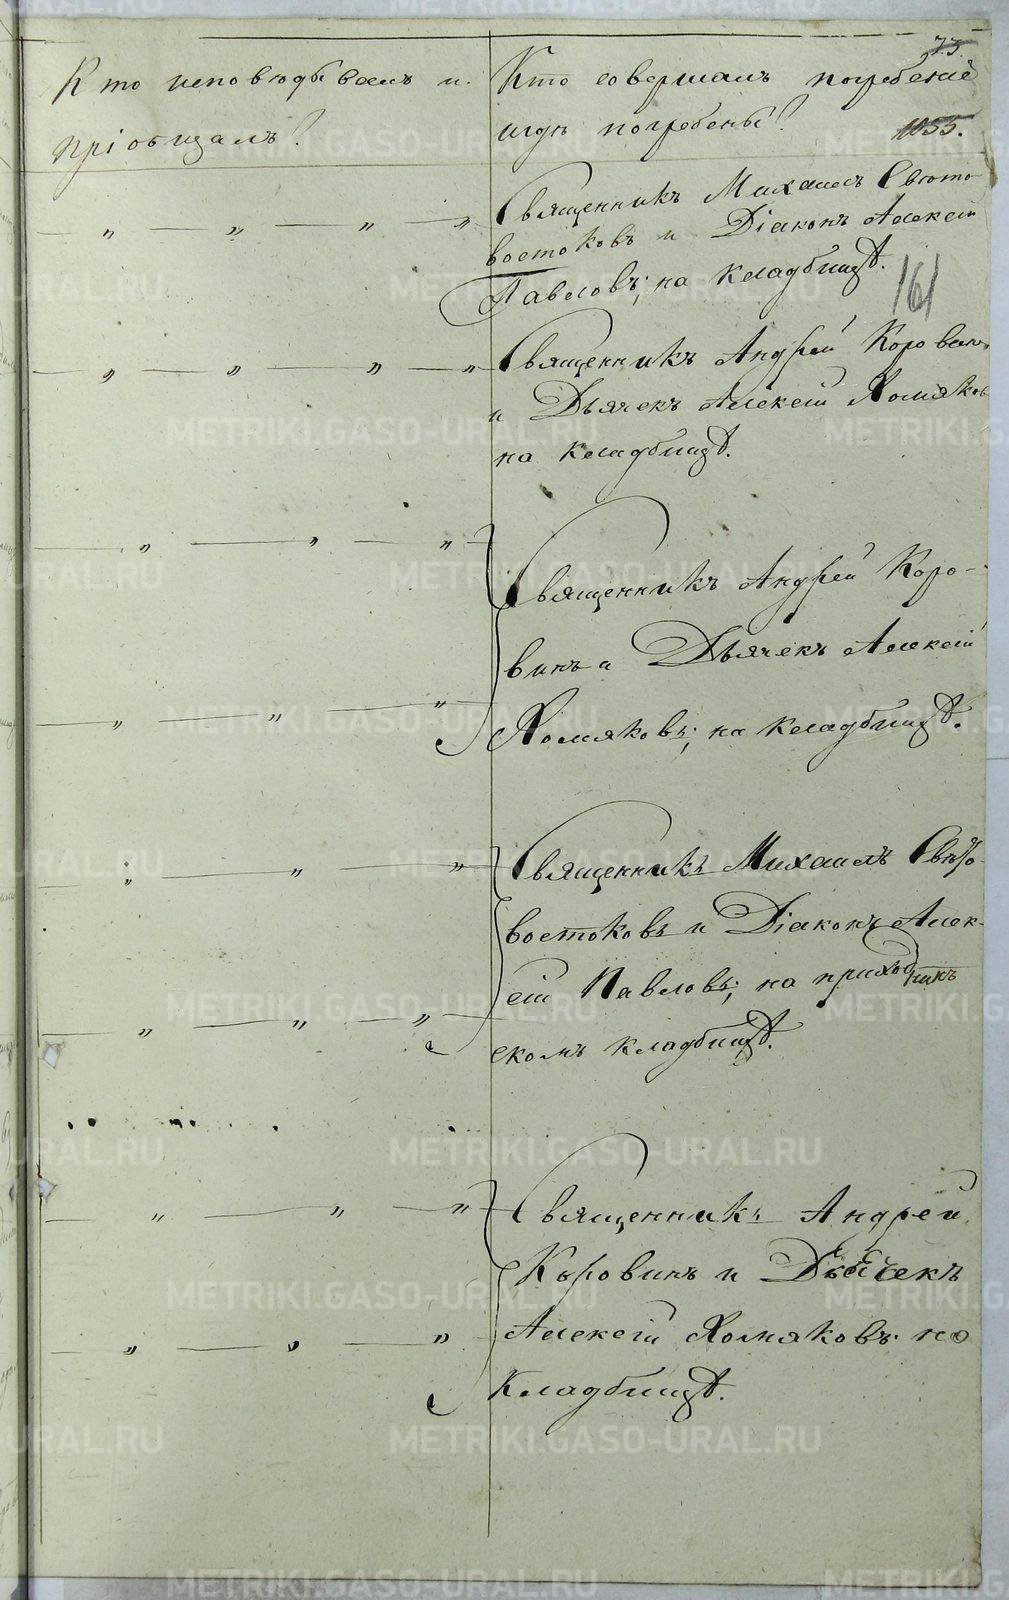 73
Кто исповѣдывалъ и
прiобщалъ?
Кто совершалъ погребенiе
и гдѣ погребены?
1055.
Священникъ Михаилъ Свѣто
востоковъ и Дiаконъ Алексѣй
Павловъ; на кладбищѣ.
161
Священникъ Андрей Коровин
и Дьячекъ Алексѣй Хомяков
на кладбищѣ.
Священникъ Андрей Коро-
винъ и Дьячекъ Алексѣй
Хомяковъ; на кладбищѣ.
Священникъ Михаилъ Свѣто-
востоковъ и Дiаконъ Алек-
сѣй Павловъ; на приход
скомъ кладбищѣ.
Священникъ Андрей
Коровинъ и Дьячекъ
Алексѣй Хомяковъ на
кладбищѣ.
METRIKI.GASO-URAL.RU